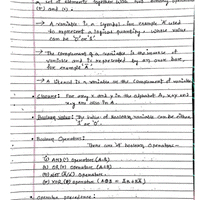 a set of elements together with two binary operators
(+) and (•).
→ A variable is a symbol for example 'A' used
to represent a logical quantity, whose value
can be '0' or '1'.
→ The complement of a variable is the inverse of
variable and is represented by an over bare,
for example 'A̅'.
→ A literal is a variable or the complement of variable
• Closure: For any x and y in the alphabet A, x+y and
x.y are also in A.
• Boolean value: The value of Boolean variable can be either
'1' or '0'.
• Boolean Operators:
There are 4 boolean Operators -
(1) AND (•) Operators (A.B)
(2) OR (+) Operators (A+B)
(3) NOT (A̅) Operators.
(4) XOR (⊕) operators (A⊕B = A̅B + AB̅)
• Operator precedence: